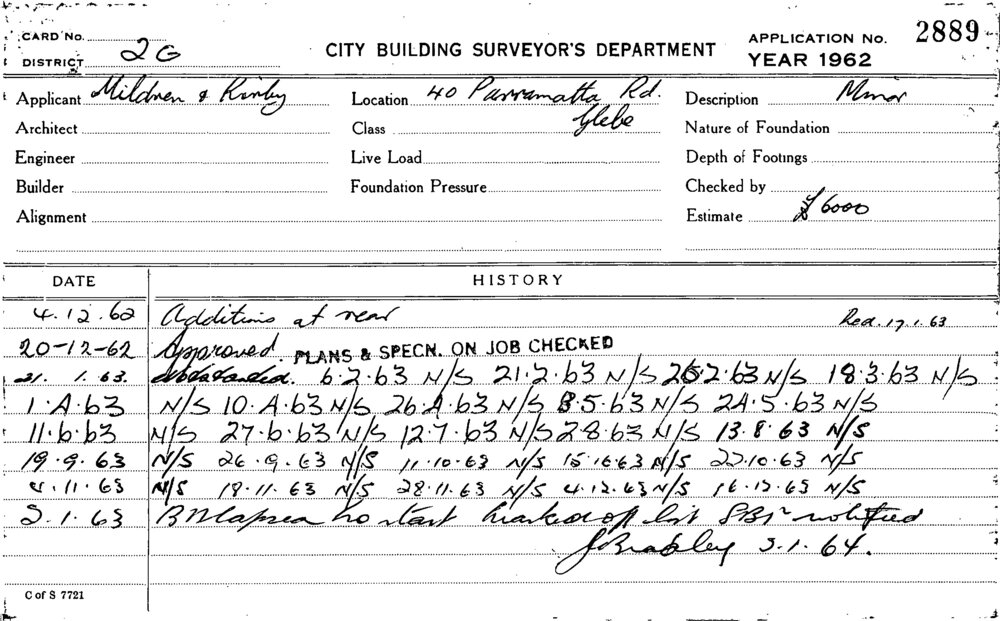 CARD No.
DISTRICT 2G
CITY BUILDING SURVEYOR'S DEPARTMENT
APPLICATION No. 2889
YEAR 1962
Applicant Mildren & Kirby Location 40 Parramatta Rd. Description Minor
Architect Class Glebe Nature of Foundation
Engineer Live Load Depth of Footings
Builder Foundation Pressure Checked by
Alignment Estimate £6000
DATE HISTORY
4.12.62 Additions at rear Red. 17.1.63
20-12-62 Approved. PLANS & SPECN. ON JOB CHECKED
21. 1.63. 6.2.63 N/S 21.2.63 N/S 26.2.63 N/S 18.3.63 N/S
1.4.63 N/S 10.4.63 N/S 26.4.63 N/S 8.5.63 N/S 24.5.63 N/S
11.6.63 N/S 27.6.63 N/S 12.7.63 N/S 2.8.63 N/S 13.8.63 N/S
19.9.63 N/S 26.9.63 N/S 11.10.63 N/S 15.10.63 N/S 22.10.63 N/S
4.11.63 N/S 18.11.63 N/S 28.11.63 N/S 4.12.63 N/S 16.12.63 N/S
2.1.63 no start marked off list notified
3.1.64.
C of S 7721